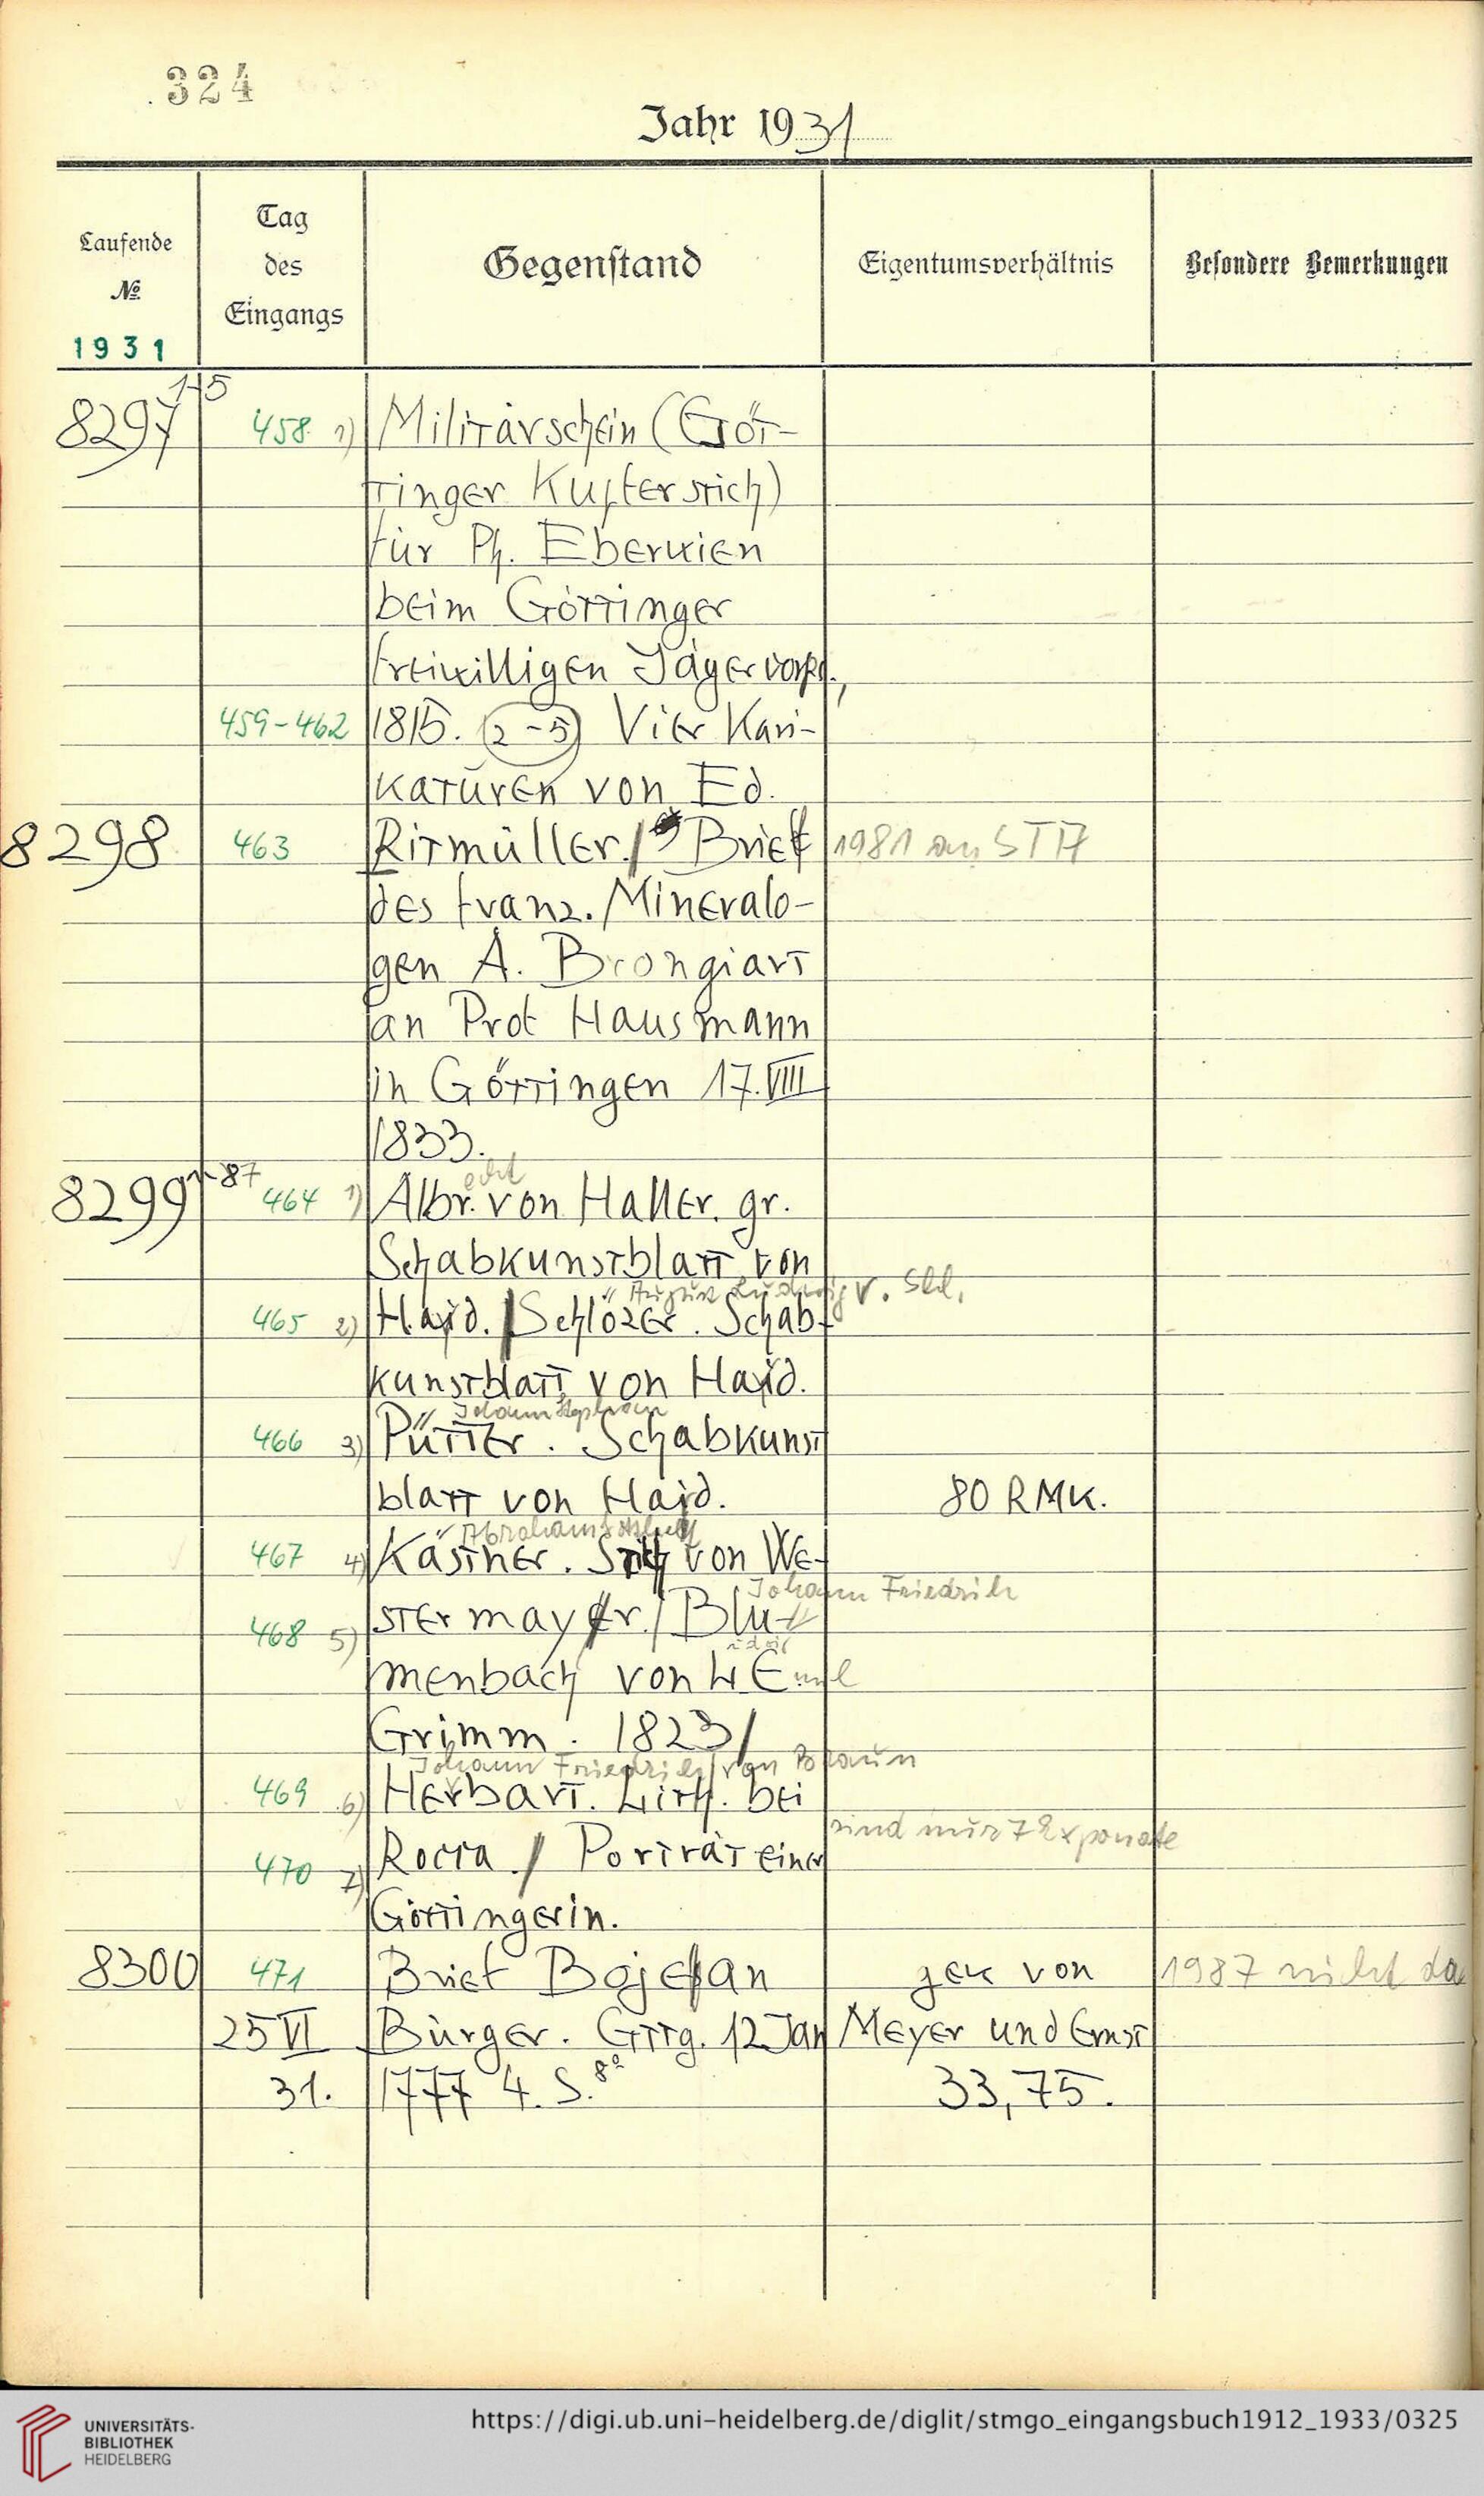 324
Jahr 1931
Laufende
№
1931
Tag
des
Eingangs
Gegenstand
Eigentumsverhältnis
Besondere Bemerkungen
8297 1-5 458 1) Militärschein (Göt-
tinger Kupferstich)
für Ph. Eberwien
beim Göttinger
freiwilligen Jäger
459-462 1815. 2-5) Vier Kari-
katuren von Ed.
8298 463 Ritmüller. / Brief 1981 an
des franz. Mineralo-
gen A. Brongiart
an Prof Hausmann
in Göttingen 17.VIII
1833.
8299 464 1) Albr. von Haller. gr.
Schabkunstblatt von
August Ludwig v. Schl.
465 2) Haid. / Schlözer. Schab-
kunstblatt von Haid.
Johann Stephan
466 3) Pütter. Schabkunst
blatt von Haid. 80 RMK.
Abraham Gotthelf
467 4) Kästner. Stich von We-
Johann Friedrich
468 5) stermayr. / Blu-
menbach von L Emil
Grimm. 1823 /
Johann Friedrich von Braun
469 6) Herbart. Lith. bei
sind nur 7 Exponate
470 7) Rocca / Porträt einer
Göttingerin.
8300 471 Brief Boje an gek von 1987 nicht da
25 VI Bürger. Gttg. 12 Jan Meyer und Ernst
31. 1777 4. S. 8° 33,75.
UNIVERSITÄTS-
BIBLIOTHEK
HEIDELBERG
https://digi.ub.uni-heidelberg.de/diglit/stmgo_eingangsbuch1912_1933/0325